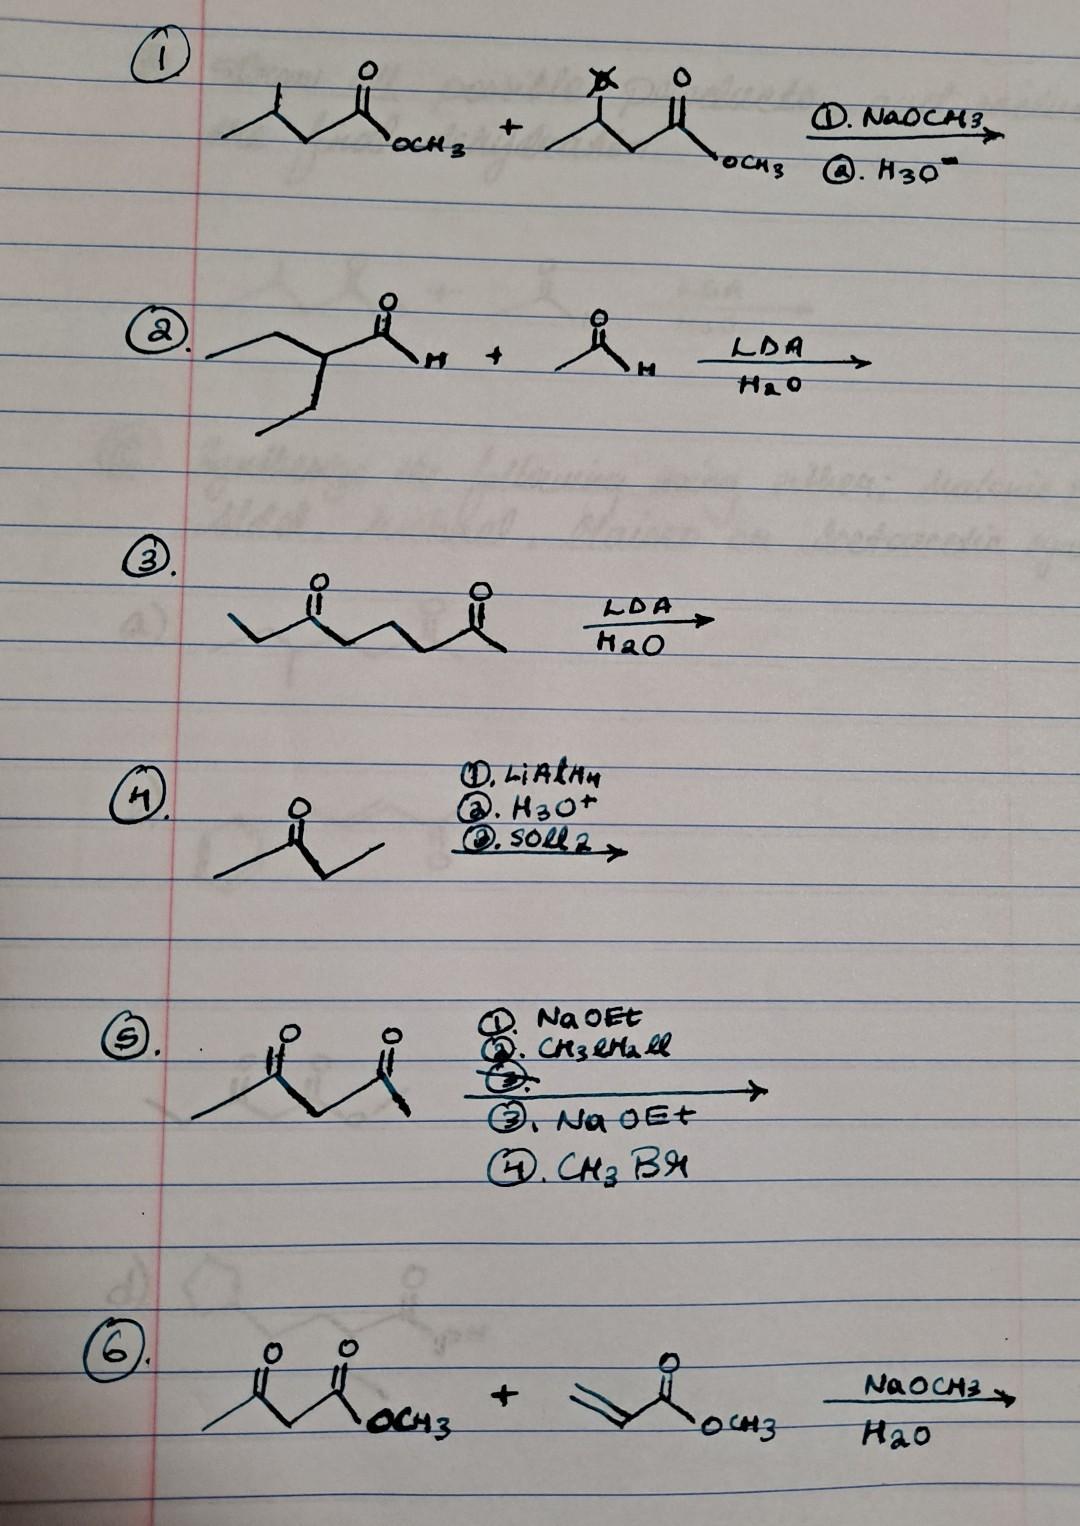 ①
O O
OCH3 + OCH3 ①. NaOCH3
②. H3O-
②. O H + O H LDA
H2O
③.
O O LDA
H2O
④. O ①. LiAlH4
②. H3O+
③. SOCl2
⑤. O O ①. NaOEt
②. CH3CH2Cl
③. NaOEt
④. CH3Br
⑥. O O OCH3 + O OCH3 NaOCH3
H2O